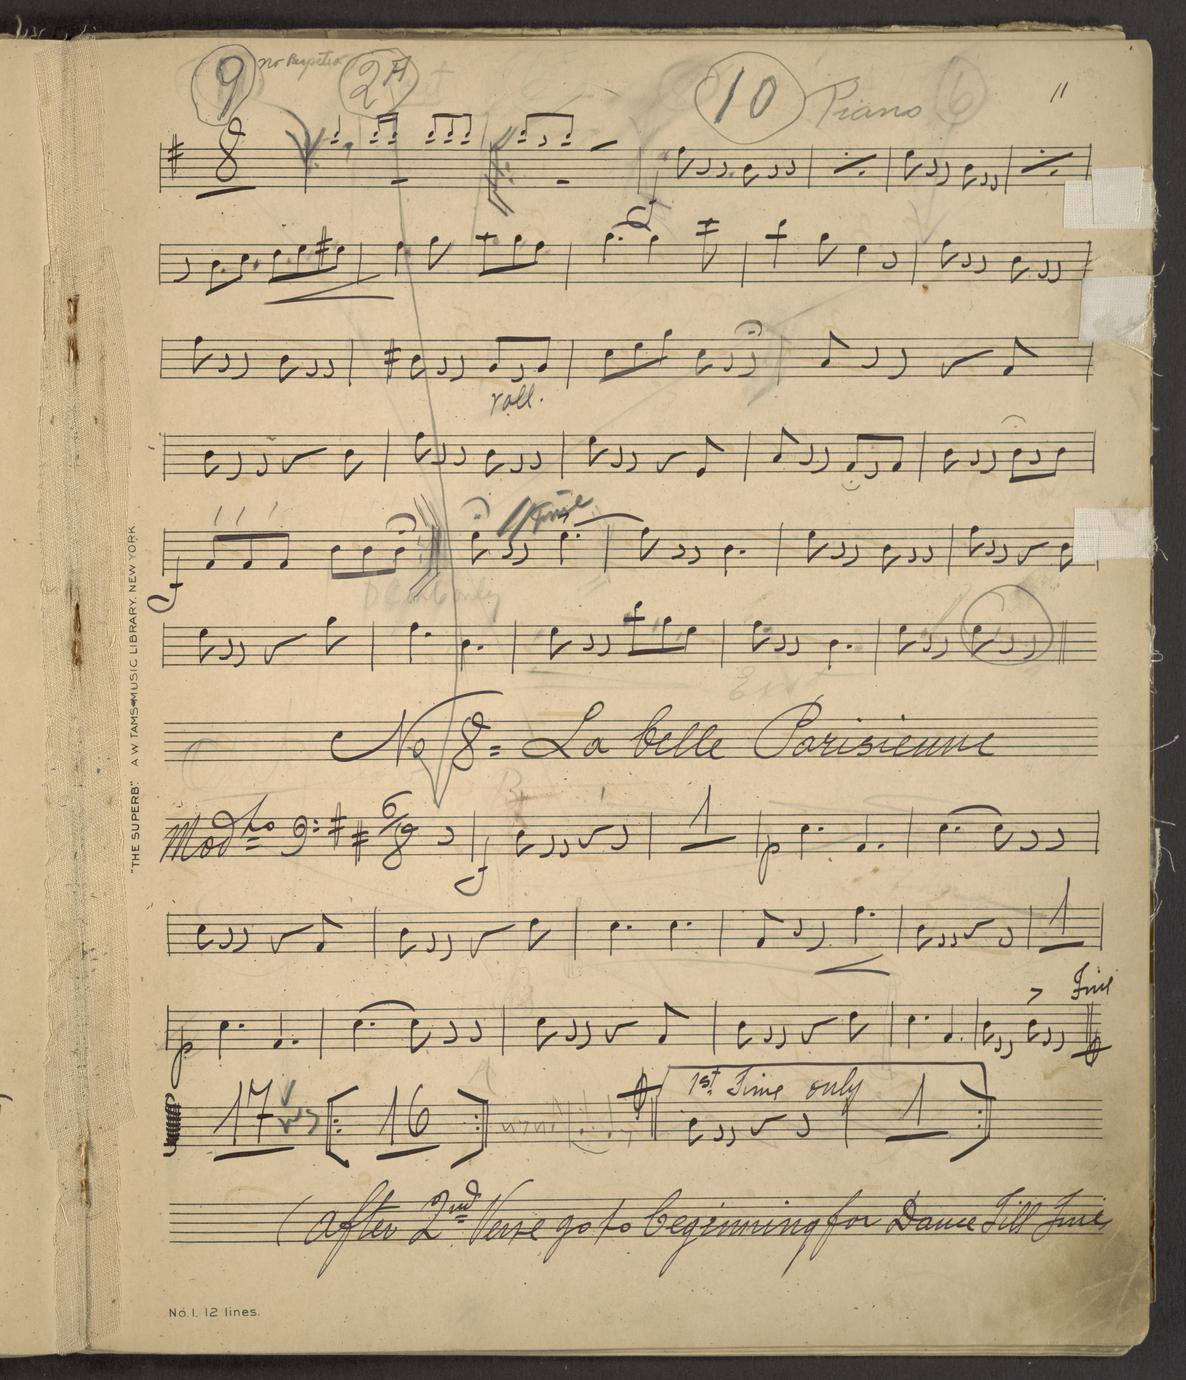 9 No Repetition 2A 10 Piano 6 11
8
roll.
Fine
f
No 8= La belle Parisienne
Modto 6/8 f 1 p
1
p > Fine
17 16 1st Time only 1
(after 2nd Verse go to beginning for Dance Till Fine
No. 1. 12 lines.
"THE SUPERB". A.W. TAMS MUSIC LIBRARY. NEW YORK